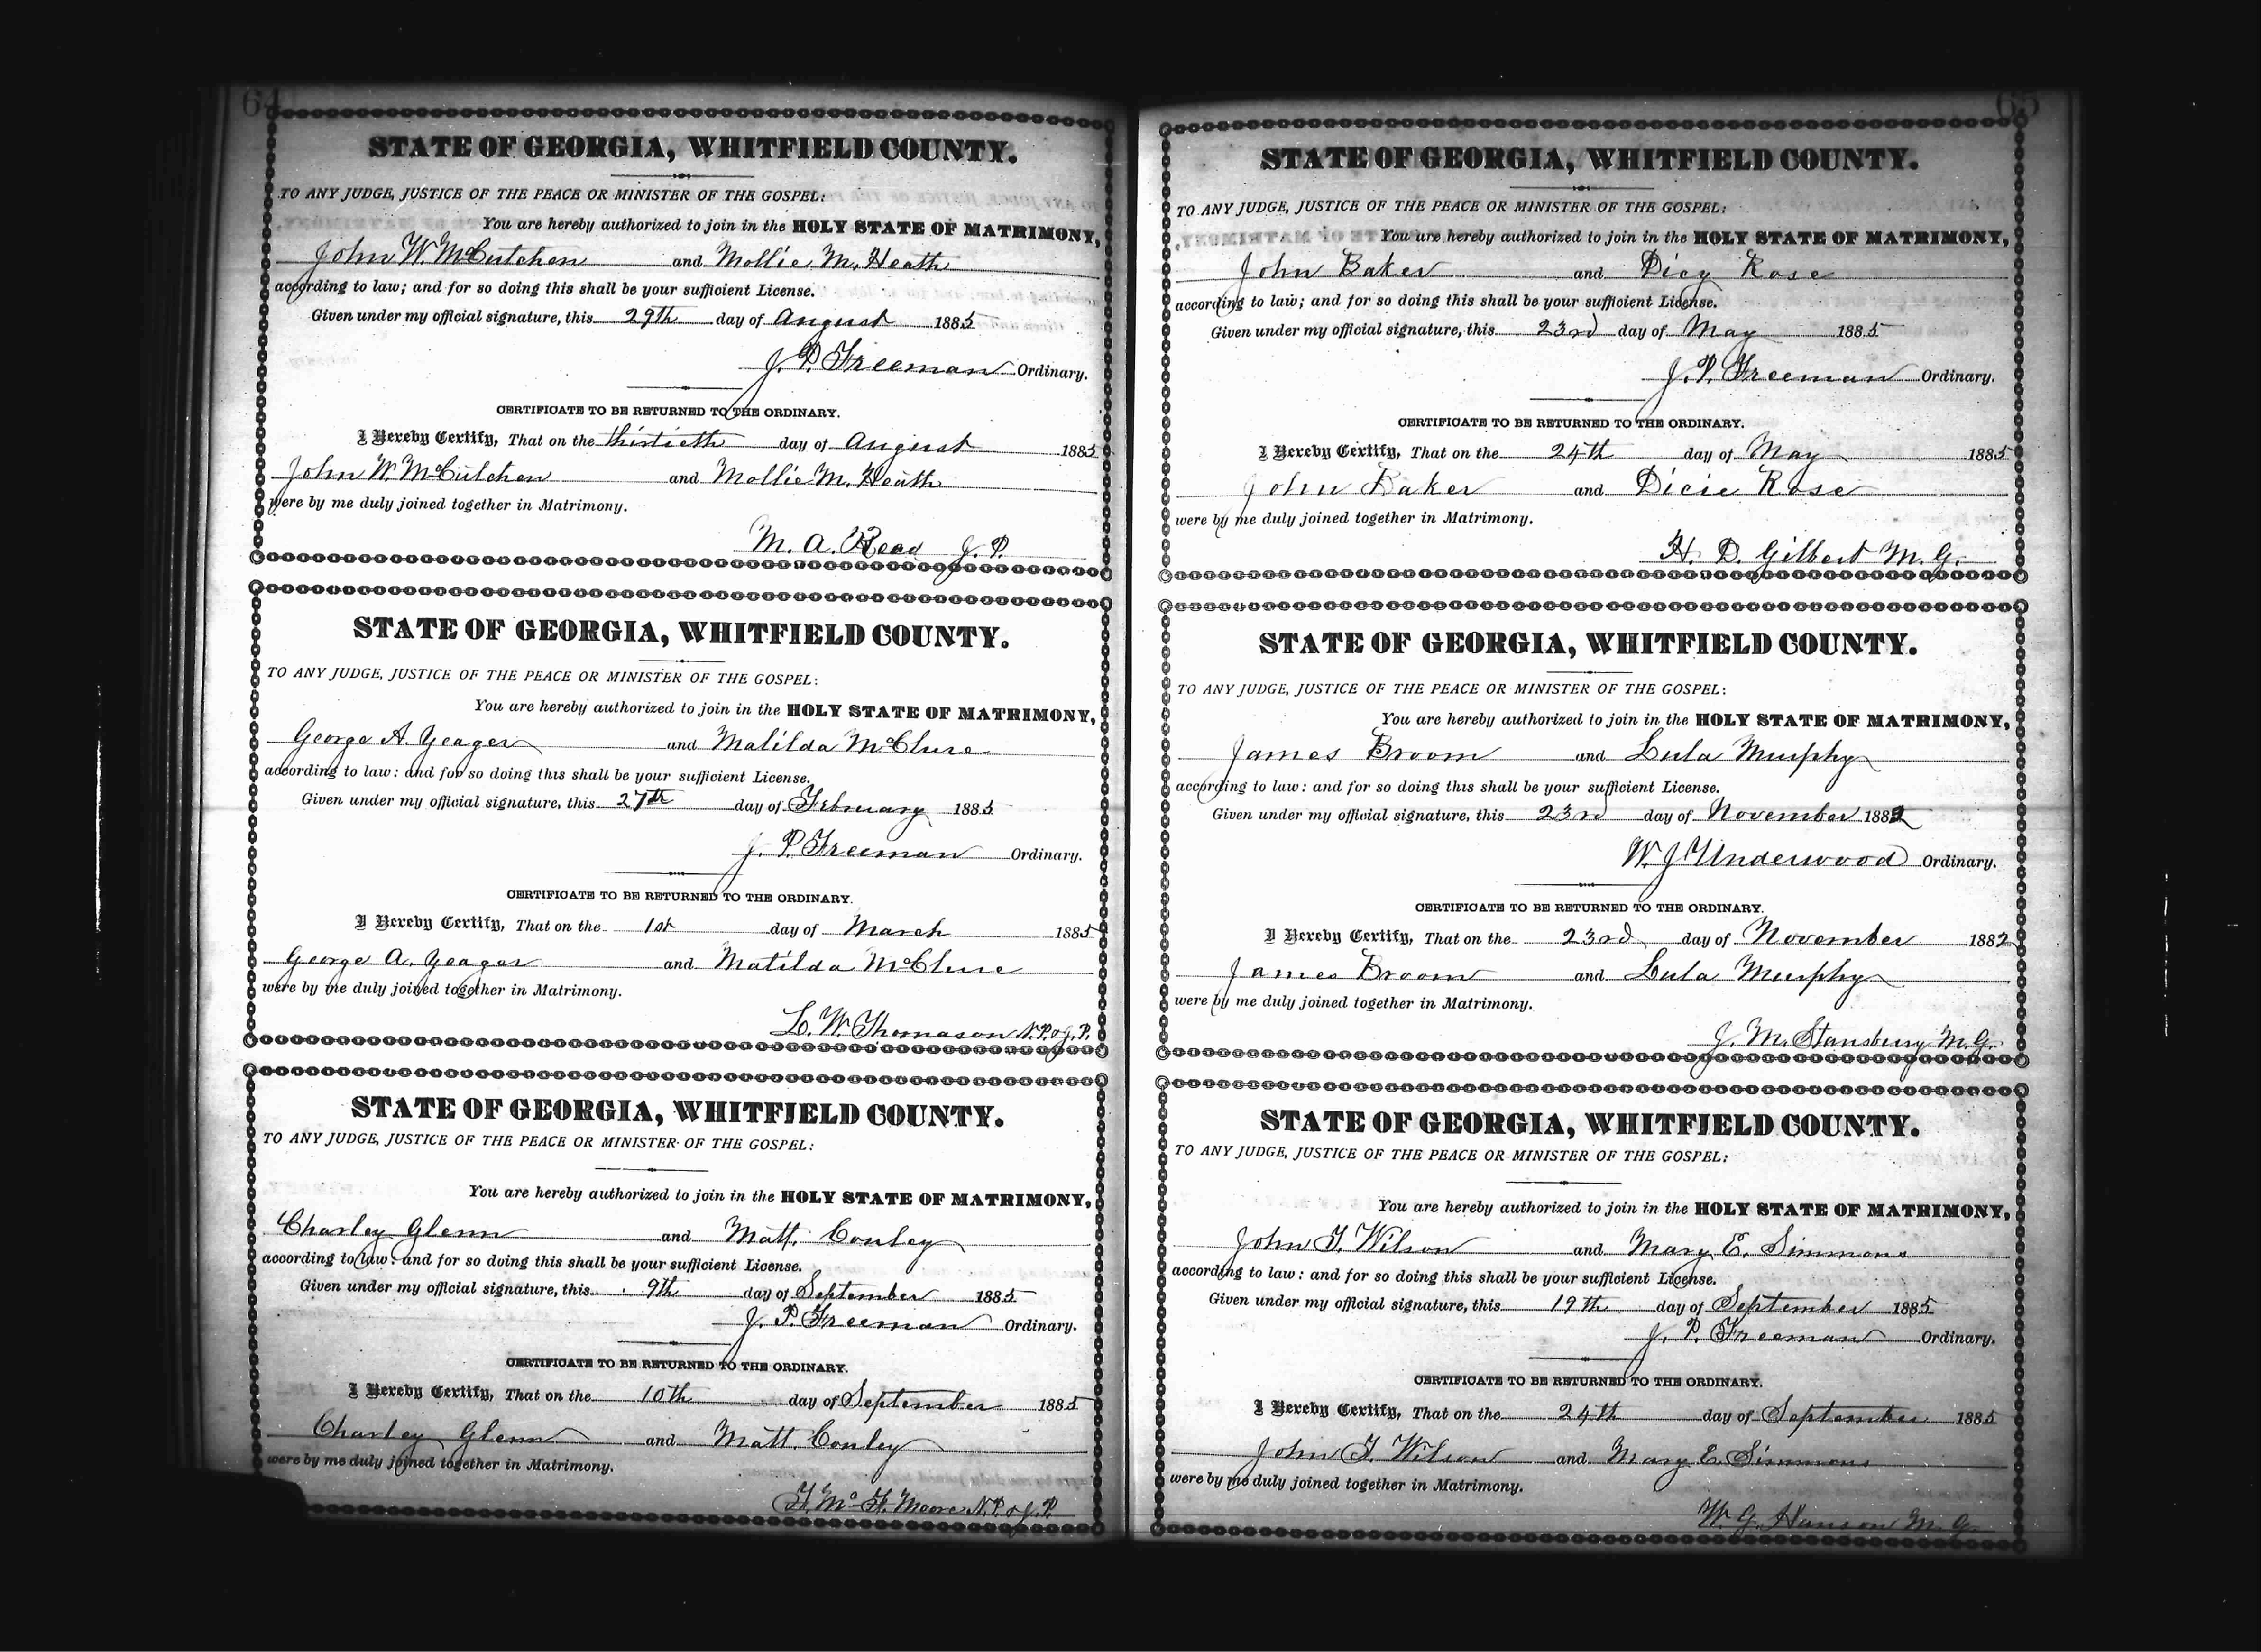 64
STATE OF GEORGIA, WHITFIELD COUNTY.
TO ANY JUDGE, JUSTICE OF THE PEACE OR MINISTER OF THE GOSPEL:
You are hereby authorized to join in the HOLY STATE OF MATRIMONY,
John W. McCutchen and Mollie M. Heath
according to law; and for so doing this shall be your sufficient License.
Given under my official signature, this 29th day of August 1885
J. P. Freeman Ordinary.
CERTIFICATE TO BE RETURNED TO THE ORDINARY.
I Hereby Certify, That on the thirtieth day of August 1885
John W. McCutchen and Mollie M. Heath
were by me duly joined together in Matrimony.
M. A. Read J. P.
STATE OF GEORGIA, WHITFIELD COUNTY.
TO ANY JUDGE, JUSTICE OF THE PEACE OR MINISTER OF THE GOSPEL:
You are hereby authorized to join in the HOLY STATE OF MATRIMONY,
George A. Yeager and Matilda McClure
according to law: and for so doing this shall be your sufficient License.
Given under my official signature, this 27th day of February 1885
J. P. Freeman Ordinary.
CERTIFICATE TO BE RETURNED TO THE ORDINARY.
I Hereby Certify, That on the 1st day of March 1885
George A. Yeager and Matilda McClure
were by me duly joined together in Matrimony.
L. W. Thomason N.P. & J.P.
STATE OF GEORGIA, WHITFIELD COUNTY.
TO ANY JUDGE, JUSTICE OF THE PEACE OR MINISTER OF THE GOSPEL:
You are hereby authorized to join in the HOLY STATE OF MATRIMONY,
Charley Glenn and Matt. Conley
according to law: and for so doing this shall be your sufficient License.
Given under my official signature, this 9th day of September 1885
J. P. Freeman Ordinary.
CERTIFICATE TO BE RETURNED TO THE ORDINARY.
I Hereby Certify, That on the 10th day of September 1885
Charley Glenn and Matt. Conley
were by me duly joined together in Matrimony.
Moore N.P. & J.P.
65
STATE OF GEORGIA, WHITFIELD COUNTY.
TO ANY JUDGE, JUSTICE OF THE PEACE OR MINISTER OF THE GOSPEL:
You are hereby authorized to join in the HOLY STATE OF MATRIMONY,
John Baker and Dicy Rose
according to law; and for so doing this shall be your sufficient License.
Given under my official signature, this 23rd day of May 1885
J. P. Freeman Ordinary.
CERTIFICATE TO BE RETURNED TO THE ORDINARY.
I Hereby Certify, That on the 24th day of May 1885
John Baker and Dicie Rose
were by me duly joined together in Matrimony.
H. D. Gilbert M. G.
STATE OF GEORGIA, WHITFIELD COUNTY.
TO ANY JUDGE, JUSTICE OF THE PEACE OR MINISTER OF THE GOSPEL:
You are hereby authorized to join in the HOLY STATE OF MATRIMONY,
James Broom and Lula Murphy
according to law: and for so doing this shall be your sufficient License.
Given under my official signature, this 23rd day of November 1882
W. J. Underwood Ordinary.
CERTIFICATE TO BE RETURNED TO THE ORDINARY.
I Hereby Certify, That on the 23rd day of November 1882
James Broom and Lula Murphy
were by me duly joined together in Matrimony.
J. M. Stansbury M. G.
STATE OF GEORGIA, WHITFIELD COUNTY.
TO ANY JUDGE, JUSTICE OF THE PEACE OR MINISTER OF THE GOSPEL:
You are hereby authorized to join in the HOLY STATE OF MATRIMONY,
John T. Wilson and Mary E. Simmons
according to law: and for so doing this shall be your sufficient License.
Given under my official signature, this 19th day of September 1885
J. P. Freeman Ordinary.
CERTIFICATE TO BE RETURNED TO THE ORDINARY.
I Hereby Certify, That on the 24th day of September 1885
John T. Wilson and Mary E. Simmons
were by me duly joined together in Matrimony.
W. G. Hanson M. G.